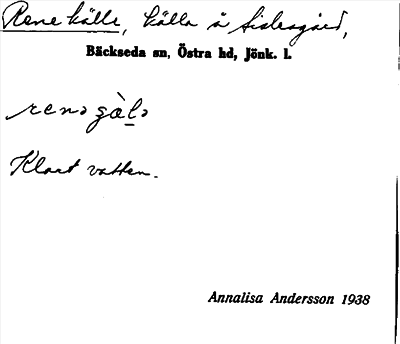 Rene källe, källa å Sidensgård,
Bäckseda sn, Östra hd, Jönk. l.
renə gàl̠ə
Klart vatten.
Annalisa Andersson 1938